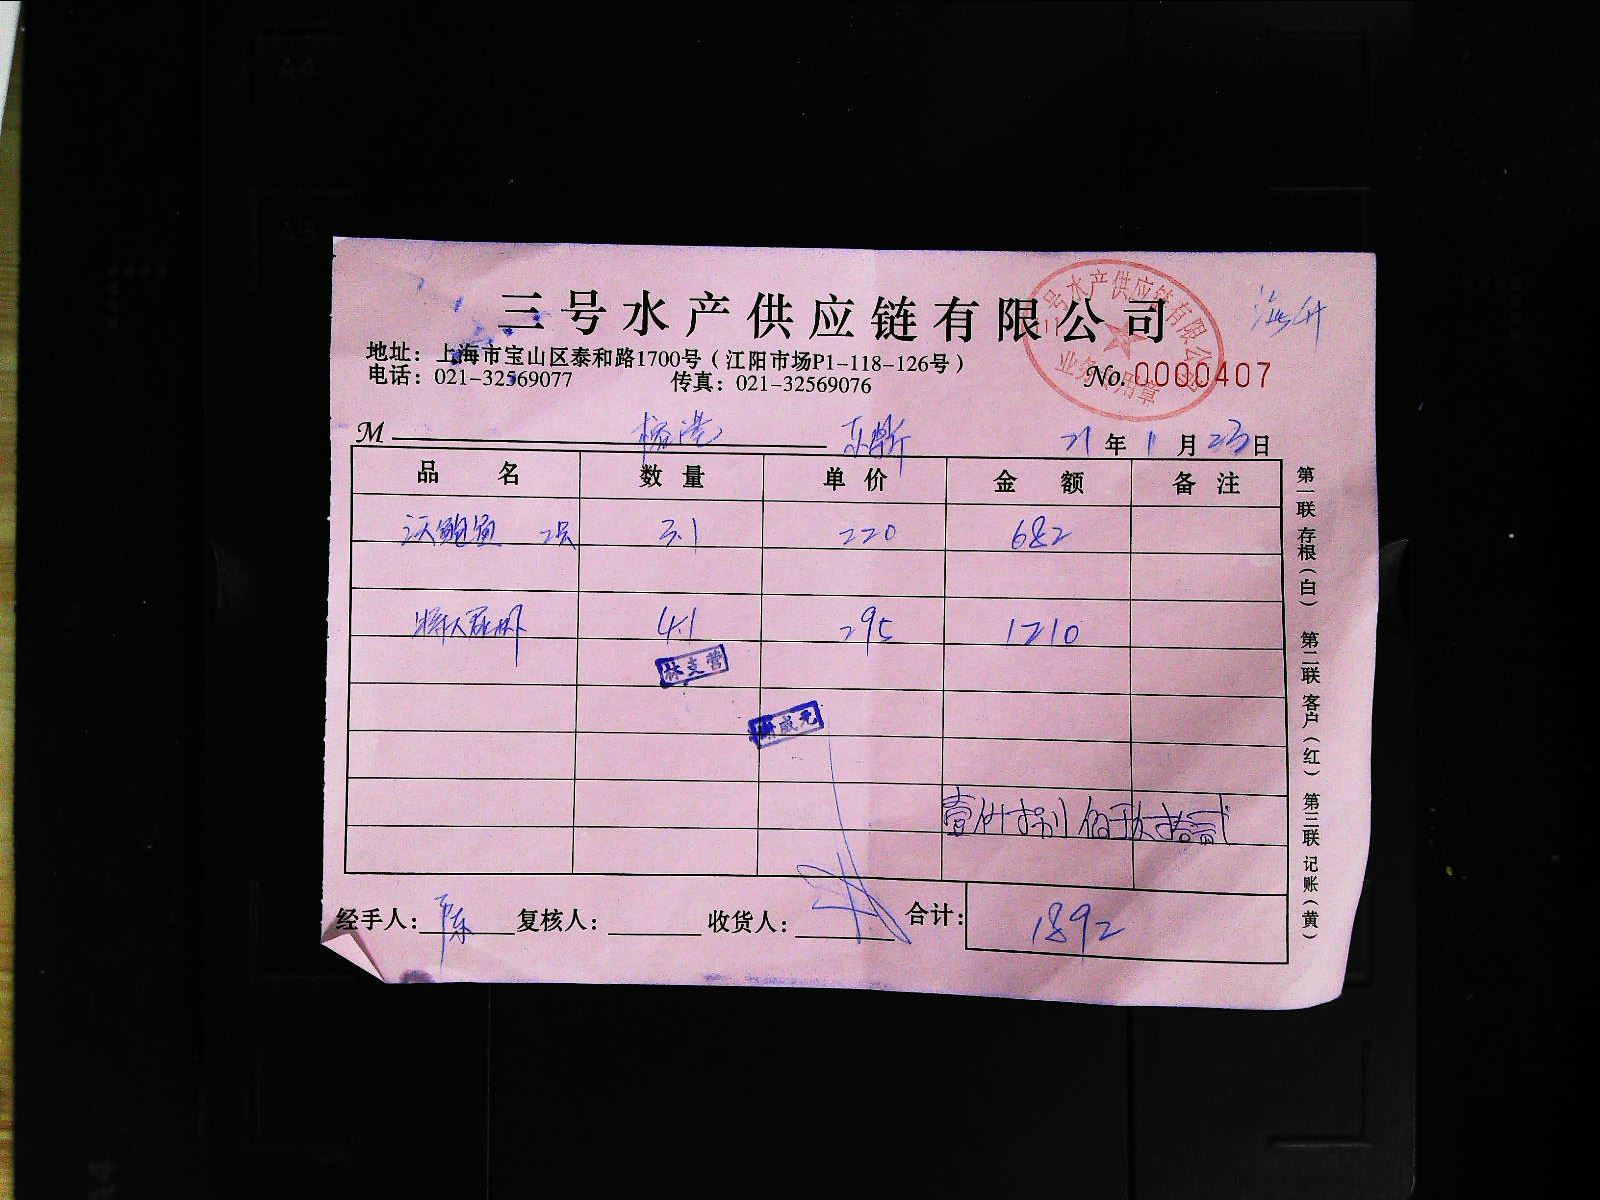 三号水产供应链有限公司
三号水产供应链有限公司
业务专用章
海升
地址：上海市宝山区泰和路1700号（江阳市场P1-118-126号）
电话：021-32569077 传真：021-32569076
No. 0000407
M 21年1月23日
品名 数量 单价 金额 备注
鲍鱼 2只 3.1 220 682
4.1 295 1210
林支营
威元
壹仟捌佰玖拾贰
经手人：陈 复核人： 收货人： 合计：1892
第一联 存根（白） 第二联 客户（红） 第三联 记账（黄）